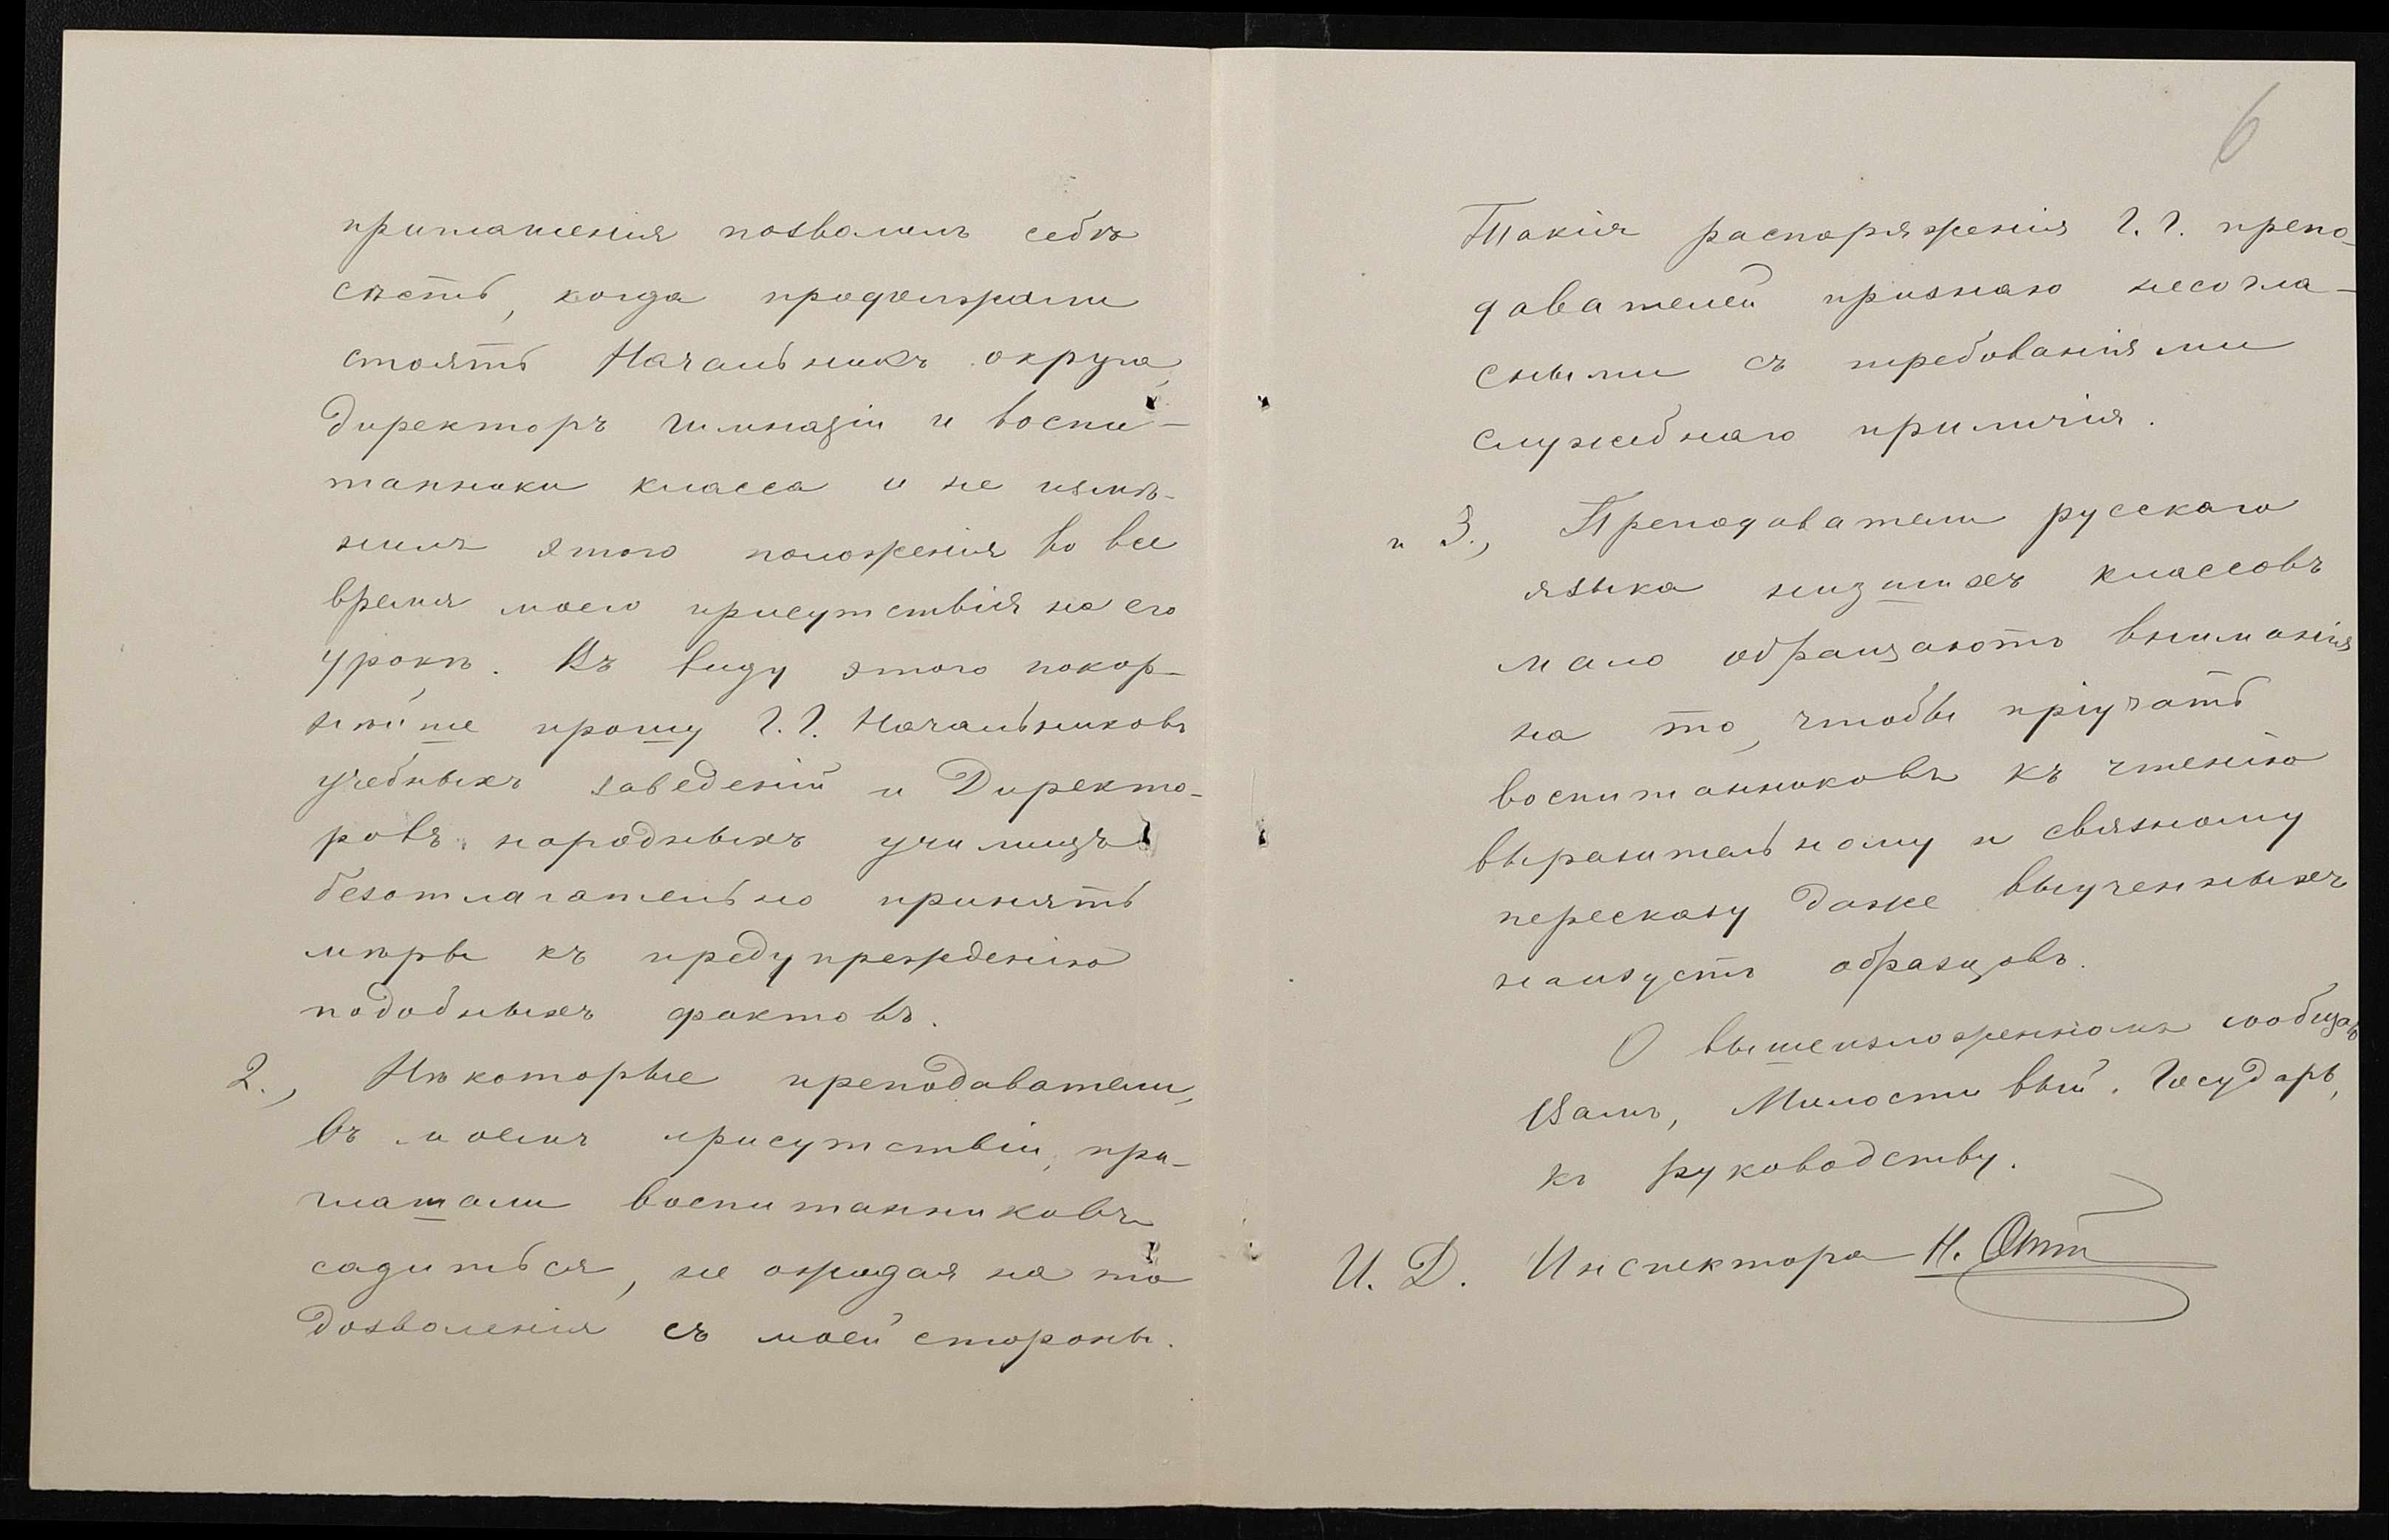 приглашенія позволилъ себѣ
сѣсть, когда продолжали
стоять Начальникъ округа,
директоръ гимназіи и воспи-
танники класса и не измѣ-
нилъ этого положенія во все
время моего присутствія на его
урокѣ. Въ виду этого покор-
нѣйше прошу Г.Г. Начальниковъ
учебныхъ заведеній и Директо-
ровъ народныхъ училищъ
безотлагательно принять
мѣры къ предупрежденію
подобныхъ фактовъ.
2., Нѣкоторые преподаватели,
въ моемъ присутствіи, при-
глашали воспитанниковъ
садиться, не ожидая на то
дозволенія съ моей стороны.
6
Такія распоряженія Г.Г. препо-
давателей признаю несогла-
сными съ требованіями
служебнаго приличія.
и 3., Преподаватели русскаго
языка низшихъ классовъ
мало обращаютъ вниманія
на то, чтобы пріучать
воспитанниковъ къ чтенію
выразительному и связному
пересказу даже выученныхъ
наизусть образцовъ.
О вышеизложенномъ сообщаю
Вамъ, Милостивый Государь,
къ руководству.
И. Д. Инспектора Н. Отт